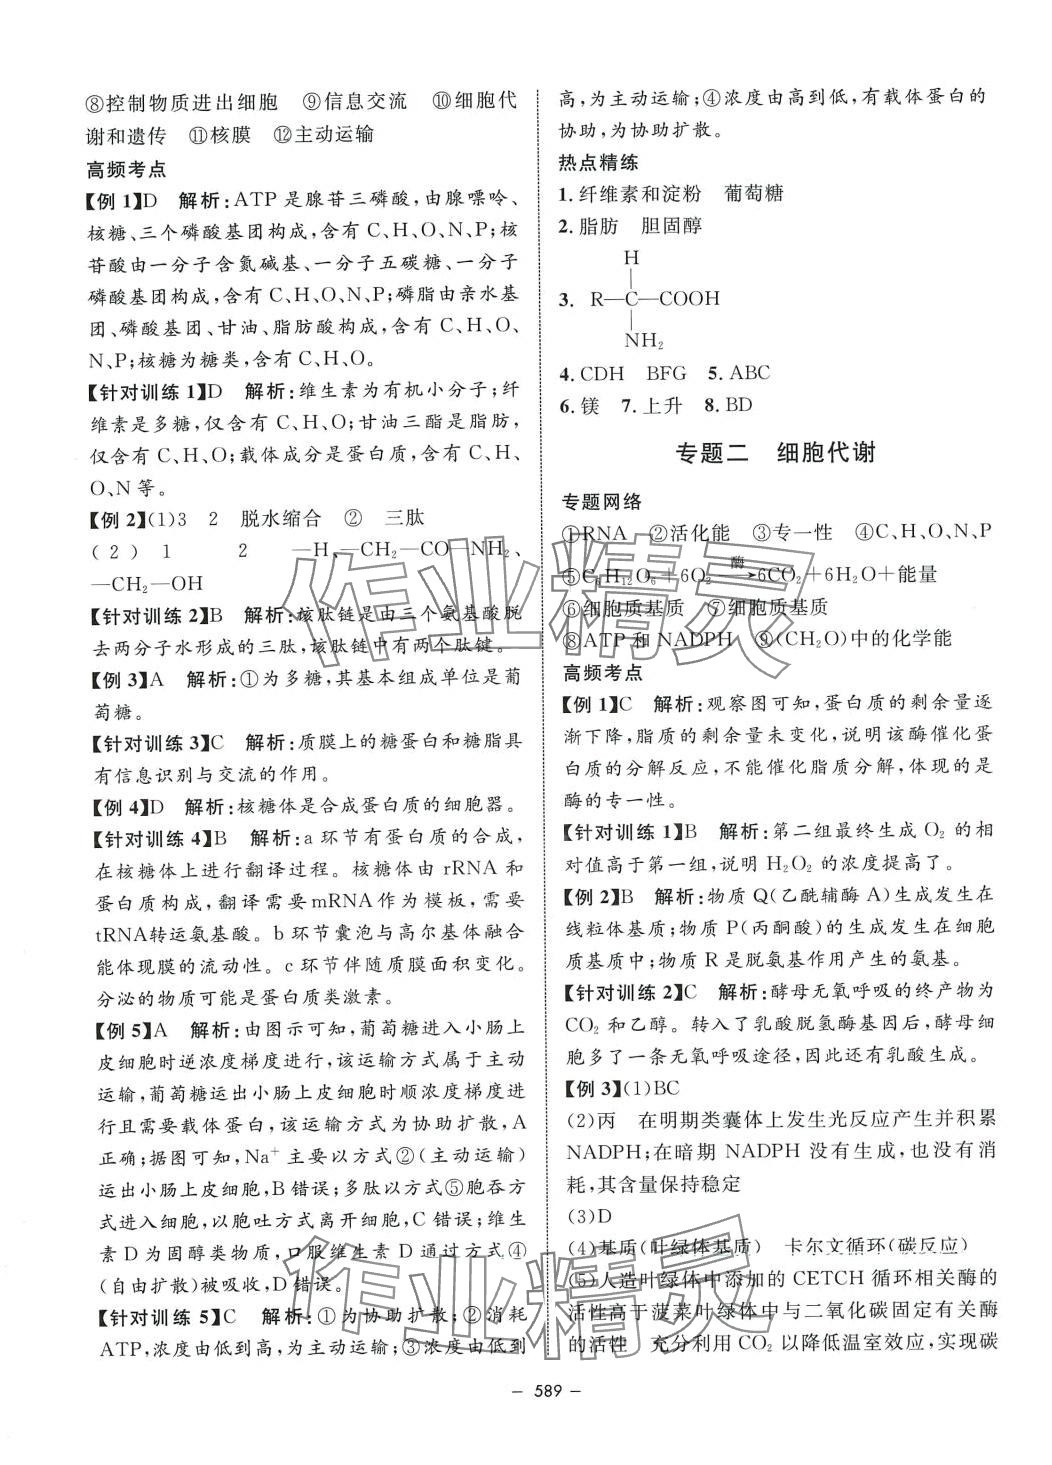 ⑧控制物质进出细胞　⑨信息交流　⑩细胞代
谢和遗传　⑪核膜　⑫主动运输
高频考点
【例 1】D　解析:ATP 是腺苷三磷酸,由腺嘌呤、
核糖、三个磷酸基团构成,含有 C、H、O、N、P;核
苷酸由一分子含氮碱基、一分子五碳糖、一分子
磷酸基团构成,含有 C、H、O、N、P;磷脂由亲水基
团、磷酸基团、甘油、脂肪酸构成,含有 C、H、O、
N、P;核糖为糖类,含有 C、H、O。
【针对训练 1】D　解析:维生素为有机小分子;纤
维素是多糖,仅含有 C、H、O;甘油三酯是脂肪,
仅含有 C、H、O;载体成分是蛋白质,含有 C、H、
O、N 等。
【例 2】(1)3　2　脱水缩合　②　三肽
(2)　1　　2　—H、—CH₂—CO—NH₂、
—CH₂—OH
【针对训练 2】B　解析:该肽链是由三个氨基酸脱
去两分子水形成的三肽,该肽链中有两个肽键。
【例 3】A　解析:①为多糖,其基本组成单位是葡
萄糖。
【针对训练 3】C　解析:质膜上的糖蛋白和糖脂具
有信息识别与交流的作用。
【例 4】D　解析:核糖体是合成蛋白质的细胞器。
【针对训练 4】B　解析:a 环节有蛋白质的合成,
在核糖体上进行翻译过程。核糖体由 rRNA 和
蛋白质构成,翻译需要 mRNA 作为模板,需要
tRNA转运氨基酸。b 环节囊泡与高尔基体融合
能体现膜的流动性。c 环节伴随质膜面积变化。
分泌的物质可能是蛋白质类激素。
【例 5】A　解析:由图示可知,葡萄糖进入小肠上
皮细胞时逆浓度梯度进行,该运输方式属于主动
运输,葡萄糖运出小肠上皮细胞时顺浓度梯度进
行且需要载体蛋白,该运输方式为协助扩散,A
正确;据图可知,Na⁺ 主要以方式②(主动运输)
运出小肠上皮细胞,B 错误;多肽以方式⑤胞吞方
式进入细胞,以胞吐方式离开细胞,C 错误;维生
素 D 为固醇类物质,口服维生素 D 通过方式④
(自由扩散)被吸收,D 错误。
【针对训练 5】C　解析:①为协助扩散;②消耗
ATP,浓度由低到高,为主动运输;③浓度由低到
高,为主动运输;④浓度由高到低,有载体蛋白的
协助,为协助扩散。
热点精练
1. 纤维素和淀粉　葡萄糖
2. 脂肪　胆固醇
H
3. R—C—COOH
NH₂
4. CDH　BFG　5. ABC
6. 镁　7. 上升　8. BD
专题二　细胞代谢
专题网络
①RNA　②活化能　③专一性　④C、H、O、N、P
⑤C₆H₁₂O₆+6O₂ —酶→ 6CO₂+6H₂O+能量
⑥细胞质基质　⑦细胞质基质
⑧ATP 和 NADPH　⑨(CH₂O)中的化学能
高频考点
【例 1】C　解析:观察图可知,蛋白质的剩余量逐
渐下降,脂质的剩余量未变化,说明该酶催化蛋
白质的分解反应,不能催化脂质分解,体现的是
酶的专一性。
【针对训练 1】B　解析:第二组最终生成 O₂ 的相
对值高于第一组,说明 H₂O₂ 的浓度提高了。
【例 2】B　解析:物质 Q(乙酰辅酶 A)生成发生在
线粒体基质;物质 P(丙酮酸)的生成发生在细胞
质基质中;物质 R 是脱氨基作用产生的氨基。
【针对训练 2】C　解析:酵母无氧呼吸的终产物为
CO₂ 和乙醇。转入了乳酸脱氢酶基因后,酵母细
胞多了一条无氧呼吸途径,因此还有乳酸生成。
【例 3】(1)BC
(2)丙　在明期类囊体上发生光反应产生并积累
NADPH;在暗期 NADPH 没有生成,也没有消
耗,其含量保持稳定
(3)D
(4)基质(叶绿体基质)　卡尔文循环(碳反应)
(5)人造叶绿体中添加的 CETCH 循环相关酶的
活性高于菠菜叶绿体中与二氧化碳固定有关酶
的活性　充分利用 CO₂ 以降低温室效应,实现碳
作业精灵
作业精灵
– 589 –